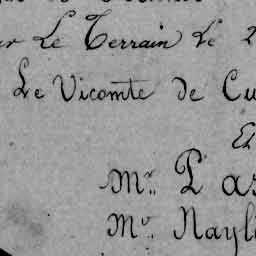 Le Terrain Le 2
Le Vicomte de Cu
Et
Mr. P as
Mr. Nayl